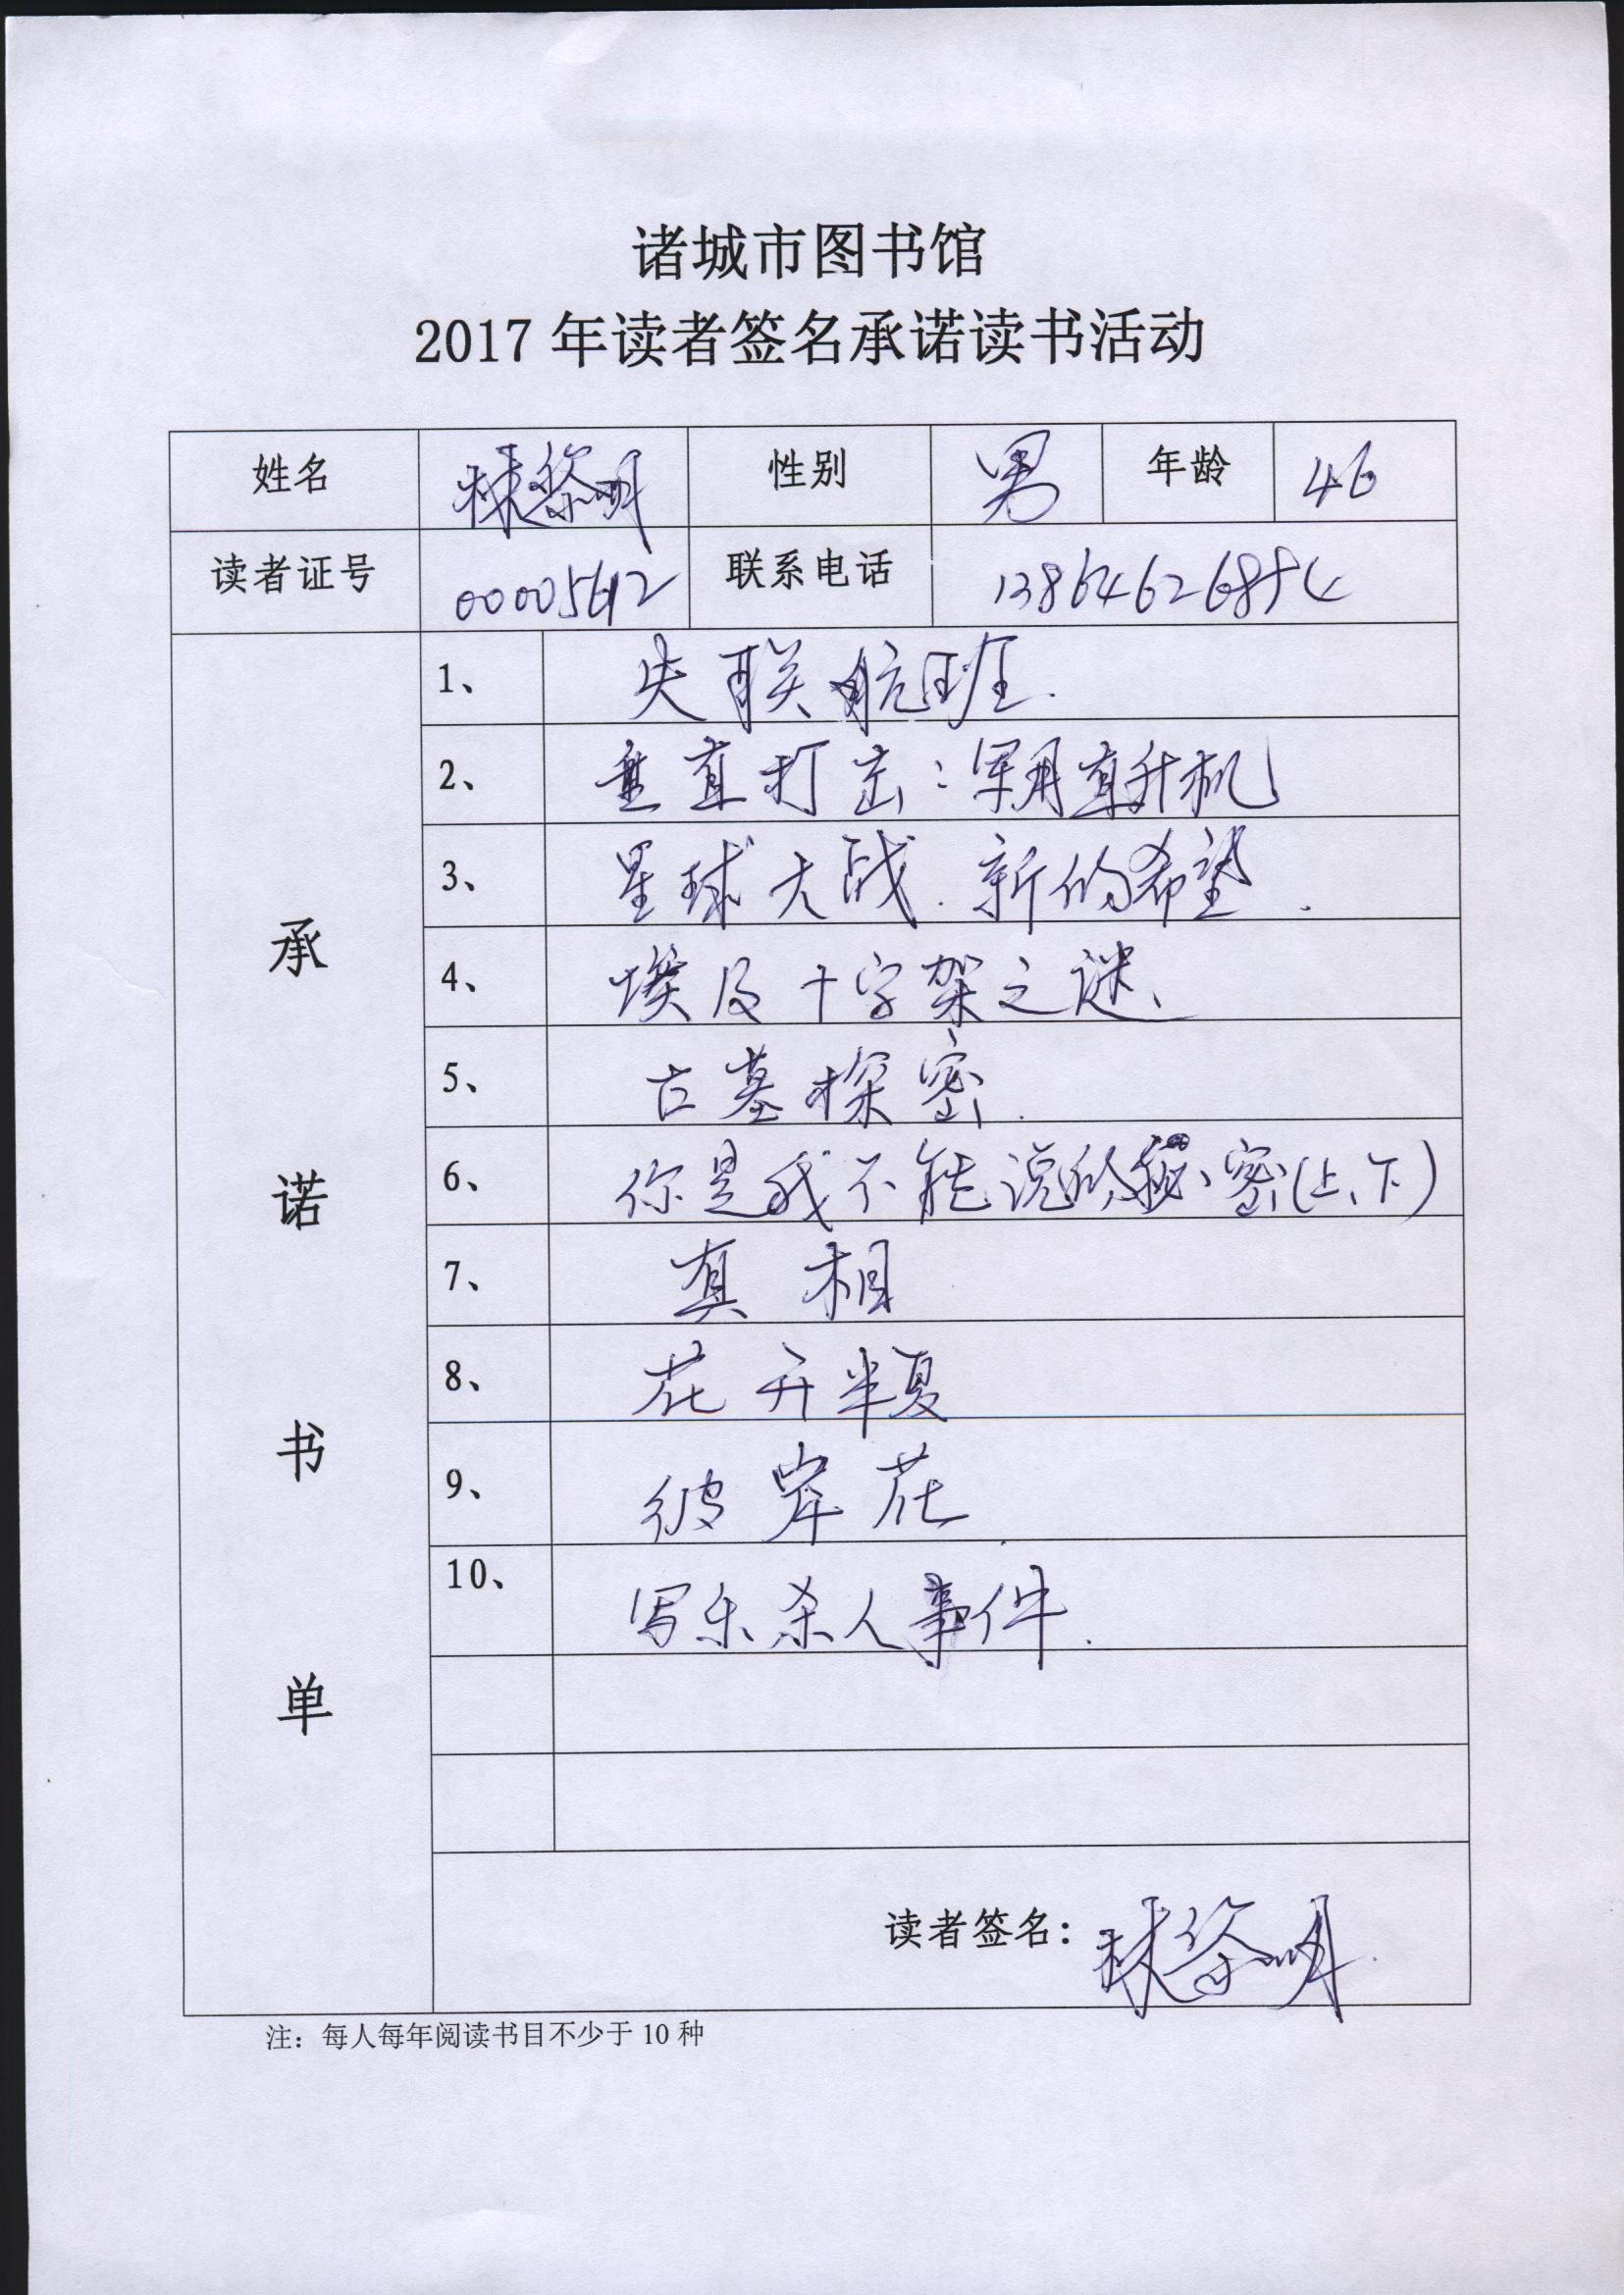 诸城市图书馆
2017年读者签名承诺读书活动
姓名 林黎明 性别 男 年龄 46
读者证号 00005612 联系电话
承诺书单
1、 失联航班.
2、 垂直打击:军用直升机
3、 星球大战.新的希望.
4、 埃及十字架之谜、
5、 古墓探密.
6、 你是我不能说的秘密(上、下)
7、 真相
8、 花开半夏
9、 彼岸花.
10、 写乐杀人事件.
读者签名: 林黎明.
注: 每人每年阅读书目不少于10种